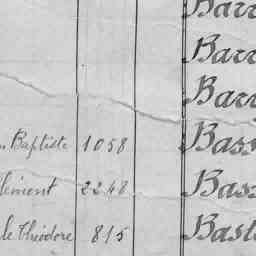 Barr
Barr
Barr
Baptiste 1058 Bass
lément 2248 Bass
le Théodore 815 Bast